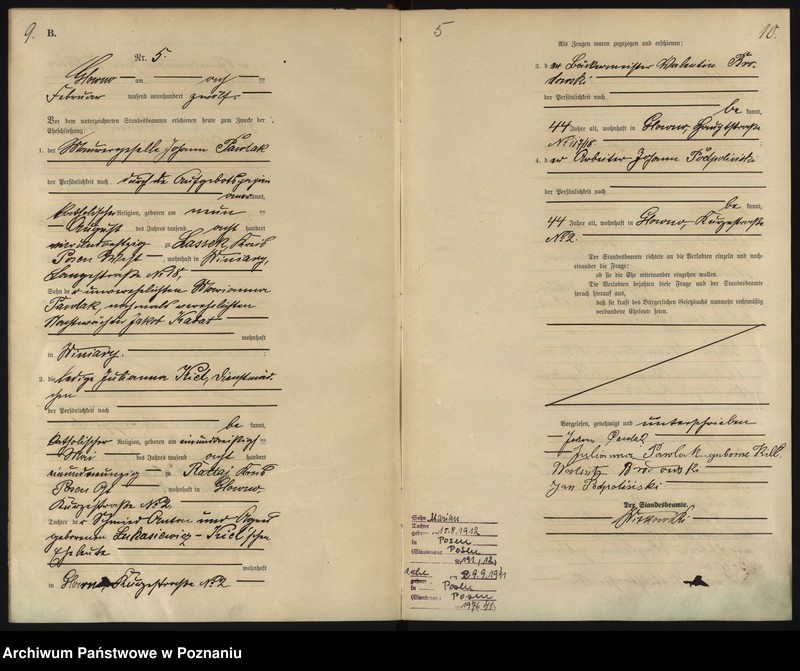 9.
B.
Nr. 5.
Głowno am acht
Februar tausend neunhundert zwölf.
Vor dem unterzeichneten Standesbeamten erschienen heute zum Zwecke der
Eheschließung:
1. der Maurergeselle Johann Pawlak
der Persönlichkeit nach durch die Aufgebotsverhandlung
kannt,
katholischer Religion, geboren am neun
August des Jahres tausend acht hundert
zu Lassek, Kreis
Posen West, wohnhaft in Winiary,
Langestraße No 18,
Sohn der unverehelichten Marianna
Pawlak, nochmals verehelichten
Nachtwächter Jakob
wohnhaft
in Winiary.
2. die ledige Julianna Kiel, Dienstmäd-
chen
der Persönlichkeit nach
be kannt,
katholischer Religion, geboren am einunddreißigsten
Mai des Jahres tausend acht hundert
einundneunzig zu Rattaj Kreis
Posen Ost, wohnhaft in Głowno,
Kurzestraße No 2,
Tochter der Schmied Anton und Agnes
geborenen Lukasiewicz-Kiel'schen
Eheleute
wohnhaft
in Głowno, Kurzestraße No 2.
5
10.
Als Zeugen waren zugezogen und erschienen:
3. der Bäckermeister Valentin Bro-
dowski
der Persönlichkeit nach
be kannt,
44 Jahre alt, wohnhaft in Głowno, Hauptstraße
No 117/118
4. der Arbeiter Johann Podpolinski
der Persönlichkeit nach
be kannt,
44 Jahre alt, wohnhaft in Głowno, Kurzestraße
No 2.
Der Standesbeamte richtete an die Verlobten einzeln und nach-
einander die Frage:
ob sie die Ehe miteinander eingehen wollen.
Die Verlobten bejahten diese Frage und der Standesbeamte
sprach hierauf aus,
daß sie kraft des Bürgerlichen Gesetzbuchs nunmehr rechtmäßig
verbundene Eheleute seien.
Vorgelesen, genehmigt und unterschrieben
Johann Pawlak
Julianna Pawlak geborne Kill
Brodowski
Jan Podpoliński
Der Standesbeamte.
Witkowski
Sohn Marian
Tochter
geb. 15.8.1912
in Posen
(Standesamt Posen
Nr 191/12)
1. Ehe 29.9.1941
in Posen
(Standesamt Posen
1976/41)
Archiwum Państwowe w Poznaniu